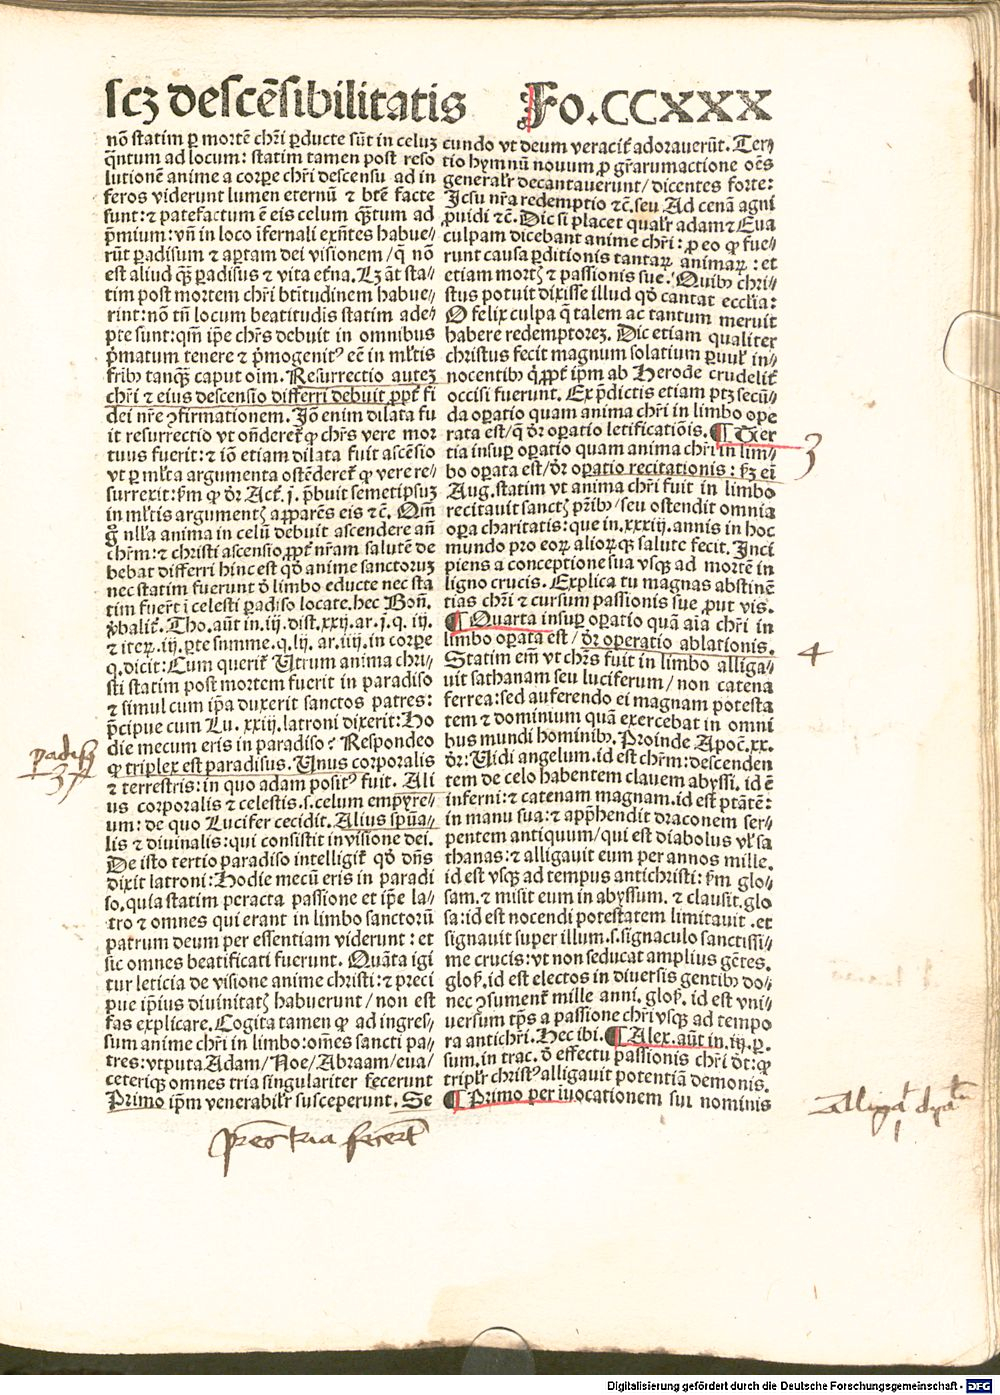 scꝫ descēsibilitatis Fo. CCXXX
nō statim ꝑ mortē chr̄i ꝑducte sūt in celuꝫ
q̄ntum ad locum: statim tamen post reso
lutionē anime a corpe chr̄i descensu ad in
feros viderunt lumen eternū ⁊ btē facte
sunt: ⁊ patefactum ē eis celum q̄ꝫtum ad
p̄mium: vn̄ in loco īfernali exn̄tes habue⸗
rūt ꝑadisum ⁊ aꝑtam dei visionem / q̄ nō
est aliud q̄ꝫ ꝑadisus ⁊ vita et̄na. Lꝫ āt sta⸗
tim post mortem chr̄i btītudinem habue⸗
rint: nō tn̄ locum beatitudīs statim ade⸗
pte sunt: qm̄ ip̄e chr̄s debuit in omnibus
p̄matum tenere ⁊ p̄mogenitꝰ eē in ml̄tis
frībꝫ tanq̄ꝫ caput oīm. Resurrectio auteꝫ
chr̄i ⁊ eius descensio differri debuit ꝓpt̄ fi
dei nr̄e ꝯfirmationem. Iō enim dilata fu
it resurrectio vt on̄deret̄ ꝙ chr̄s vere mor
tuus fuerit: ⁊ iō etiam dilata fuit ascēsio
vt ꝑ ml̄ta argumenta ostēderet̄ ꝙ vere re⸗
surrexit: ẜm ꝙ dr̄ Act̄. j. p̄buit semetipsuꝫ
in ml̄tis argumentꝭ apparēs eis ⁊c̄. Qm̄
g̊ nll̄a anima in celū debuit ascendere an̄
chr̄m: ⁊ christi ascensio ꝓpt̄ nr̄am salutē de
bebat differri hinc est qd̄ anime sanctoruꝫ
nec statim fuerunt d̄ limbo educte nec sta
tim fuer̄t ī celesti ꝑadiso locate. hec Bon̄.
v̄balit̄. Tho. aūt in .iij. dist. xxij. ar. j. q. iij.
⁊ iteꝝ .iij. ꝑte summe. q. lij. ar. iiij. in corpe
q. dicit: Cum querit̄ Utrum anima chri⸗
sti statim post mortem fuerit in paradiso
⁊ simul cum ip̄a duxerit sanctos patres:
p̄cipue cum Lu. xxiij. latroni dixerit: Ho
die mecum eris in paradiso? Respondeo
ꝙ triplex est paradisus. Unus corporalis
⁊ terrestris: in quo adam positꝰ fuit. Ali
us corporalis ⁊ celestis .s. celum empyre⸗
um: de quo Lucifer cecidit. Alius spūa⸗
lis ⁊ diuinalis: qui consistit in visione dei.
De isto tertio paradiso intelligit̄ qd̄ dn̄s
dixit latroni: Hodie mecū eris in paradi
so. quia statim peracta passione et ip̄e la⸗
tro ⁊ omnes qui erant in limbo sanctorū
patrum deum per essentiam viderunt: et
sic omnes beatificati fuerunt. Quāta igi
tur leticia de visione anime christi: ⁊ preci
pue ip̄ius diuinitatꝭ habuerunt / non est
fas explicare. Cogita tamen ꝙ ad ingres⸗
sum anime chr̄i in limbo: om̄es sancti pa⸗
tres: vtputa Adam / Noe / Abraam / eua /
ceteriqꝫ omnes tria singulariter fecerunt
Primo ip̄m venerabilr̄ susceperunt. Se
cundo vt deum veracit̄ adorauerūt. Ter⸗
tio hymnū nouum ꝓ gr̄arumactione oēs
generalr̄ decantauerunt / dicentes forte:
Iesu nr̄a redemptio ⁊c̄. seu Ad cenā agni
ꝓuidi ⁊c̄. Dic si placet qualr̄ adam ⁊ Eua
culpam dicebant anime chr̄i: ꝓ eo ꝙ fue⸗
runt causa ꝑditionis tantaꝝ animaꝝ: et
etiam mortꝭ ⁊ passionis sue. Quibꝫ chri⸗
stus potuit dixisse illud qd̄ cantat eccl̄ia:
O felix culpa q̄ talem ac tantum meruit
habere redemptoreꝫ. Dic etiam qualiter
christus fecit magnum solatium ꝑuul̄ in⸗
nocentibꝫ q̇ ꝓpt̄ ip̄m ab Herode crudelit̄
occisi fuerunt. Ex p̄dictis etiam ptꝫ secū⸗
da oꝑatio quam anima chr̄i in limbo ope
rata est / q̄ dr̄ oꝑatio letificatiōis. ¶ Ter
tia insuꝑ oꝑatio quam anima chr̄i in lim⸗
bo oꝑata est / dr̄ oꝑatio recitationis: ẜꝫ em̄
Aug. statim vt anima chr̄i fuit in limbo
recitauit sanctꝭ pr̄ibꝫ / seu ostendit omnia
oꝑa charitatis: que in .xxxiij. annis in hoc
mundo pro eoꝝ alioꝝqꝫ salute fecit. Inci
piens a conceptione sua vsqꝫ ad mortē in
ligno crucis. Explica tu magnas abstinē
tias chr̄i ⁊ cursum passionis sue ꝓut vis.
¶ Quarta insuꝑ oꝑatio quā aīa chr̄i in
limbo oꝑata est / dr̄ operatio ablationis.
Statim em̄ vt chr̄s fuit in limbo alliga⸗
uit sathanam seu luciferum / non catena
ferrea: sed auferendo ei magnam potesta
tem ⁊ dominium quā exercebat in omni
bus mundi hominibꝫ. Proinde Apoc̄. xx.
dr̄: Uidi angelum. id est chr̄m: descenden
tem de celo habentem clauem abyssi. id ē
inferni: ⁊ catenam magnam. id est ptātē:
in manu sua: ⁊ app̄hendit draconem ser⸗
pentem antiquum / qui est diabolus vl̄ sa
thanas: ⁊ alligauit eum per annos mille.
id est vsqꝫ ad tempus antichristi: ẜm glo⸗
sam. ⁊ misit eum in abyssum. ⁊ clausit. glo
sa: id est nocendi potestatem limitauit. et
signauit super illum .s. signaculo sanctissi⸗
me crucis: vt non seducat amplius gētes.
glos̄. id est electos in diuersis gentibꝫ do⸗
nec ꝯsument̄ mille anni. glos̄. id est vni⸗
uersum tp̄s a passione chr̄i vsqꝫ ad tempo
ra antichr̄i. Hec ibi. ¶ Alex. aūt in .iij. ꝑ.
sum. in trac. d̄ effectu passionis chr̄i dt̄: ꝙ
triplr̄ christꝰ alligauit potentiā demonis.
¶ Primo per īuocationem sui nominis
3
4
3
pr̄es tria fecer̄t
Digitalisierung gefördert durch die Deutsche Forschungsgemeinschaft - DFG